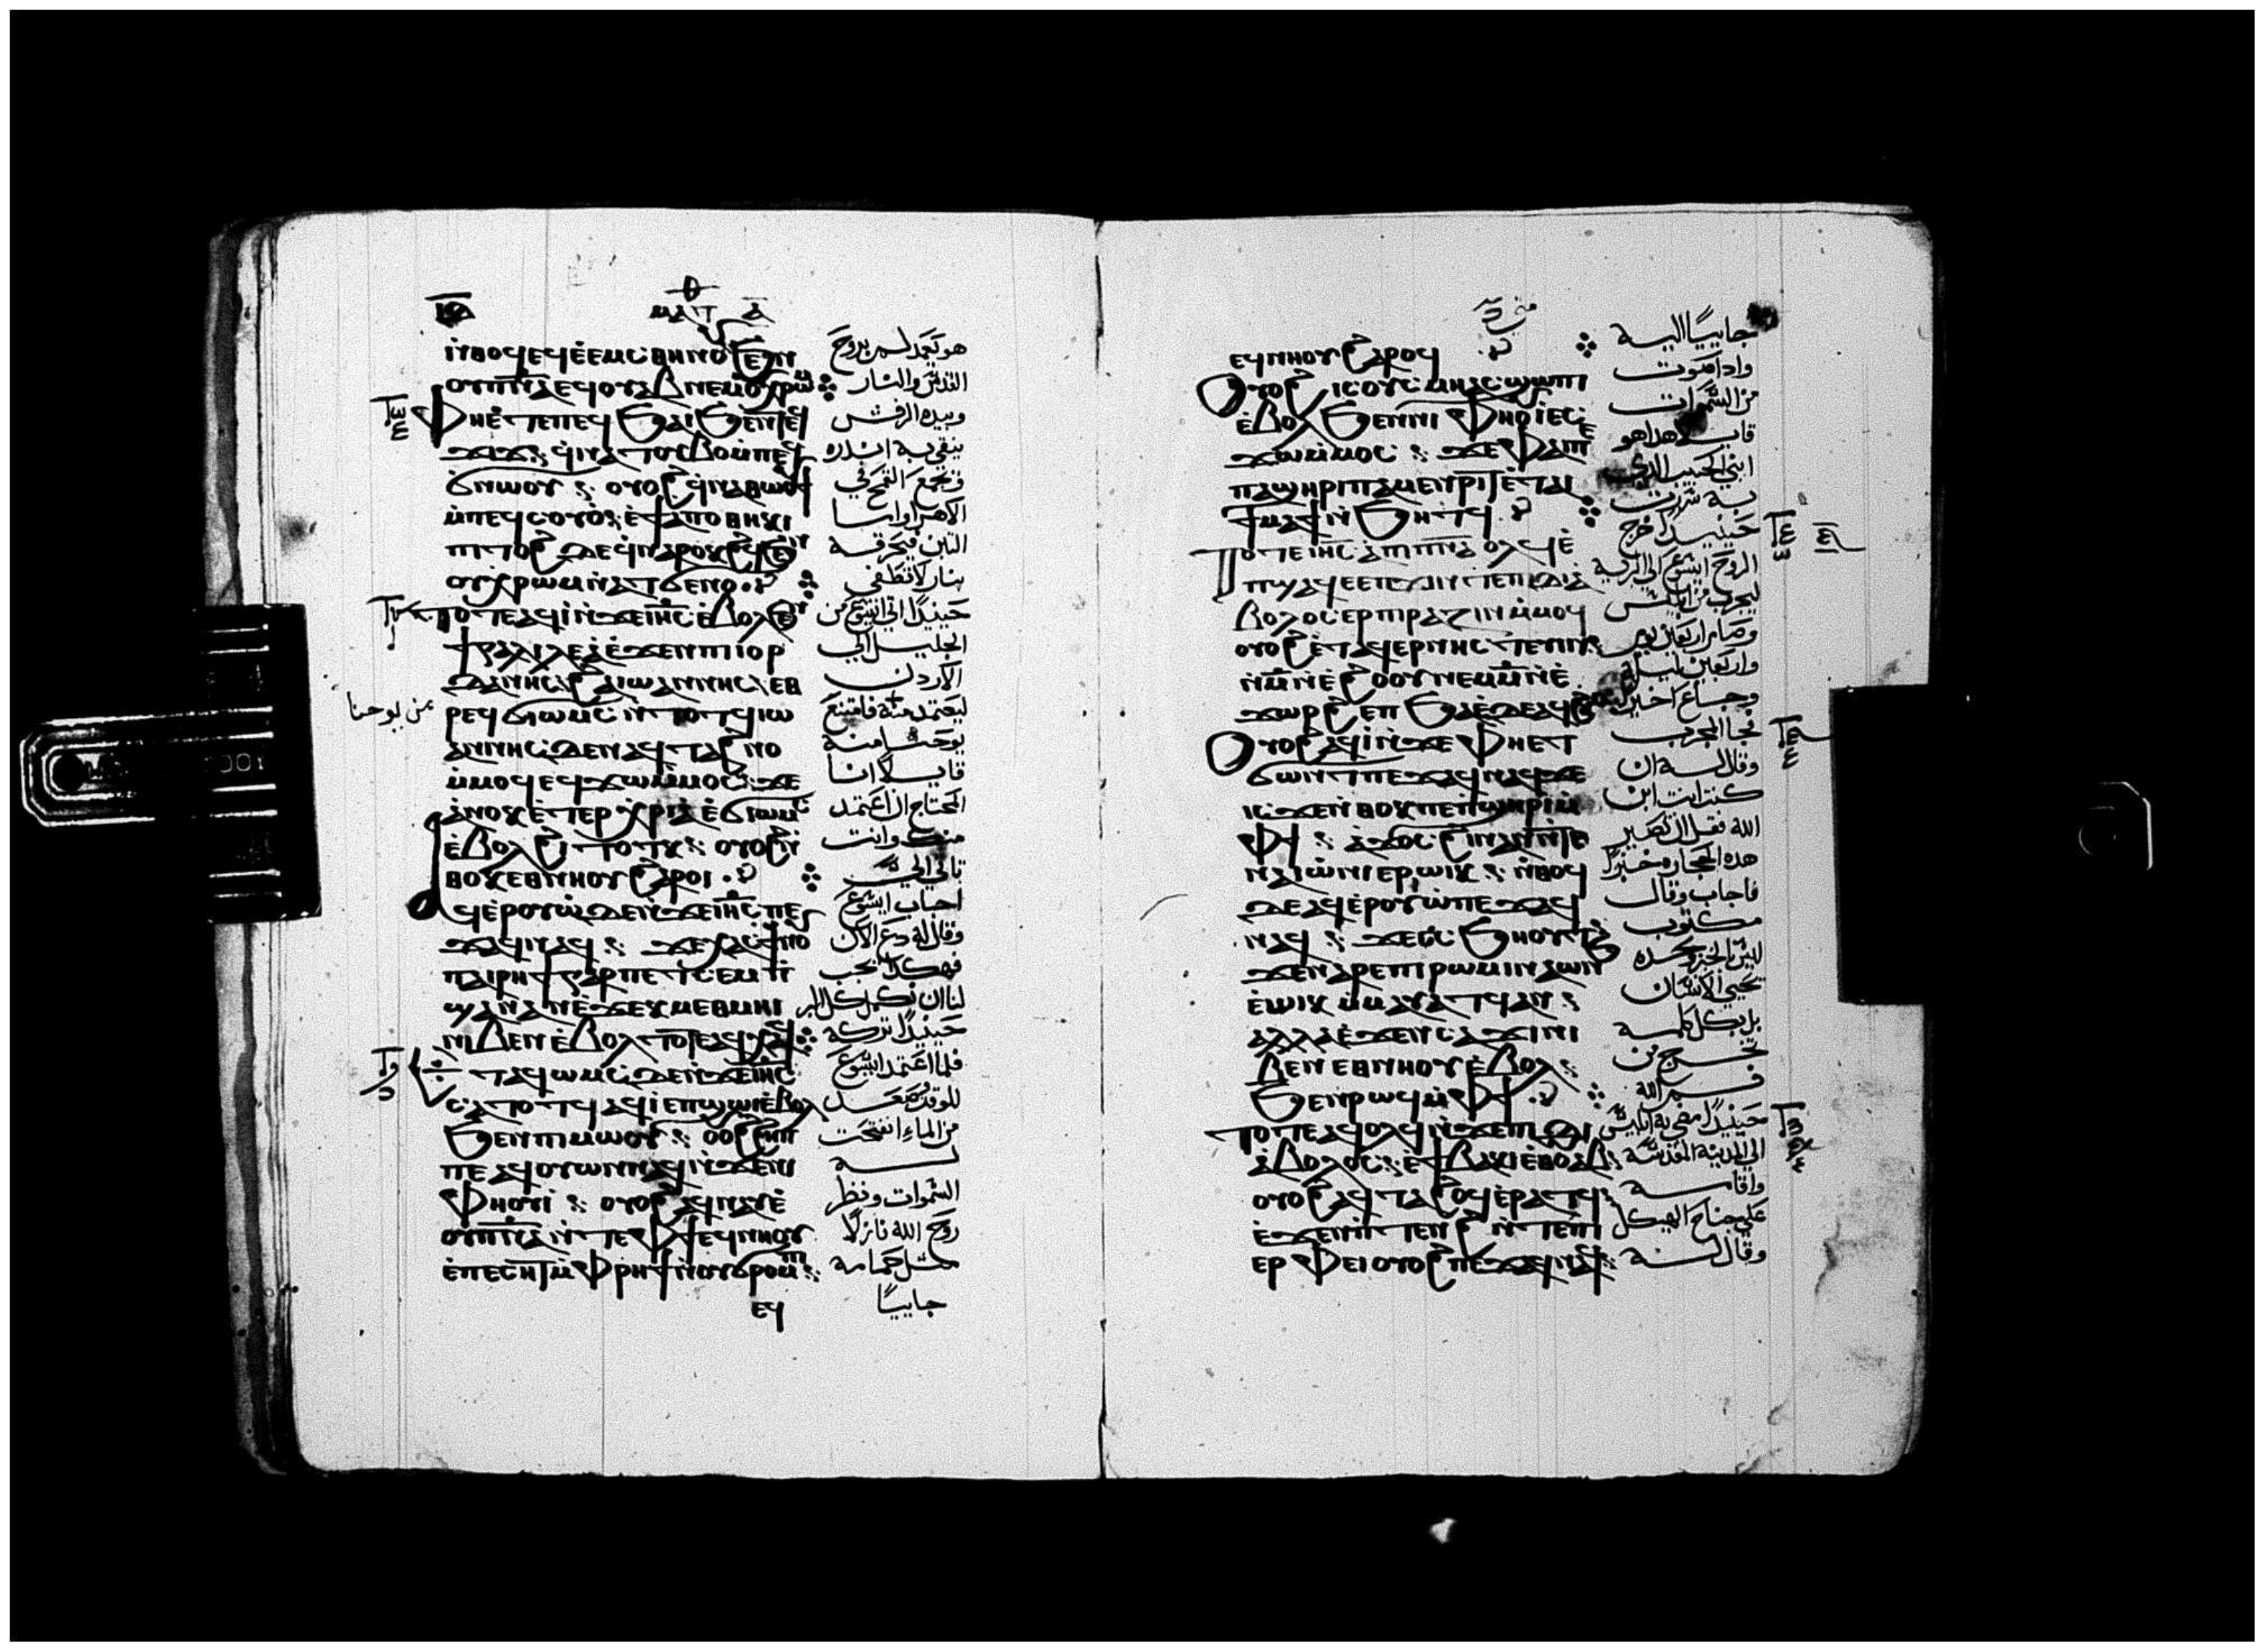 ⲙⲁⲧ ⲁ
ⲛ̀ⲑⲟϥ ⲉϥⲉ̀ⲉⲙⲥ ⲑⲏⲛⲟⲩ ϧⲉⲛ
ⲟⲩⲡⲛⲁ ⲉϥⲟⲩⲁⲃ ⲛⲉⲙ ⲟⲩⲭⲣⲱⲙ
ⲫⲏ ⲉ̀ⲧⲉ ⲡⲉϥϧⲁⲓ ϧⲉⲛ ⲧⲉϥ
ϫⲓϫ ϥⲛⲁⲧⲟⲩⲃⲟ ⲙ̀ⲡⲉϥ
ϭⲛⲱⲟⲩ ⲟⲩⲟϩ ϥⲛⲁⲑⲱⲟⲩϯ
ⲙ̀ⲡⲉϥⲥⲟⲩⲟ ⲉ̀ϯⲁⲡⲟⲑⲏⲕⲓ
ⲡⲓⲧⲟϩ ⲇⲉ ϥⲛⲁⲣⲟⲕϩϥ ϧⲉⲛ
ⲟⲩⲭⲣⲱⲙ ⲛ̀ⲁⲧϭⲉⲛⲟ
ⲧⲟⲧⲉ ⲁϥⲓ̀ ⲛ̀ϫⲉ ⲓⲏⲥ ⲉ̀ⲃⲟⲗϧⲉⲛ
ϯⲅⲁⲗⲓⲗⲉⲁ̀ ⲉ̀ϫⲉⲛ ⲡⲓⲓⲟⲣ
ⲇⲁⲛⲏⲥ ϩⲁ ⲓⲱⲁⲛⲛⲏⲥ ⲉⲑ
ⲣⲉϥϭⲓⲱⲙⲥ ⲛ̀ⲧⲟⲧϥ ⲓⲱ
ⲁⲛⲛⲏⲥ ⲇⲉ ⲛⲁϥⲧⲁϩⲛⲟ
ⲙ̀ⲙⲟϥ ⲉϥϫⲱ ⲙ̀ⲙⲟⲥ ϫⲉ
ⲁ̀ⲛⲟⲕ ⲉ̀ⲧⲉⲣⲭⲣⲓⲁ̀ ⲉ̀ϭⲓⲱⲙⲥ
ⲉ̀ⲃⲟⲗϩⲓⲧⲟⲧⲕ ⲟⲩⲟϩ ⲛ̀
ⲑⲟⲕ ⲉⲑⲛⲏⲟⲩ ϩⲁⲣⲟⲓ
ⲁϥⲉⲣⲟⲩⲱ̀ ⲇⲉ ⲛ̀ϫⲉ ⲓⲏⲥ ⲡⲉ
ϫⲁϥ ⲛⲁϥ ϫⲉ ⲭⲁⲥ ϯⲛⲟⲩ
ⲡⲁⲓⲣⲏϯ ⲅⲁⲣ ⲡⲉⲧⲥⲉⲙⲡ
ϣⲁ ⲛⲁⲛ ⲉ̀ϫⲉⲕ ⲙⲉⲑⲙⲏⲓ
ⲛⲓⲃⲉⲛ ⲉ̀ⲃⲟⲗ ⲧⲟⲧⲉ ⲁϥⲭⲁϥ
ⲉⲧⲁϥⲱⲙⲥ ⲇⲉ ⲛ̀ϫⲉ ⲓⲏⲥ
ⲥⲁⲧⲟⲧϥ ⲁϥⲓ ⲉⲡϣⲱⲓ ⲉ̀ⲃⲟⲗ
ϧⲉⲛ ⲡⲓⲙⲱⲟⲩ ⲟⲩⲟϩ ϩⲏⲡ
ⲡⲉ ⲁϥⲟⲩⲱⲛ ⲛⲁϥ ⲛ̀ϫⲉ ⲛⲓ
ⲫⲏⲟⲩⲓ̀ ⲟⲩⲟϩ ⲁϥⲛⲁⲩ ⲉ̀
ⲟⲩⲡⲛⲁ ⲛ̀ⲧⲉ ⲫϯ ⲉϥⲛⲏⲟⲩ
ⲉ̀ⲡⲉⲥⲏⲧ ⲙ̀ⲫⲣⲏϯ ⲛ̀ⲟⲩϭⲣⲟⲙⲡⲓ
ⲉϥ
هو يعمدكم بروح
القدس والنار
وبيده الرفش
ينقي به اندره
ويجمع القمح في
الاهرا واما
التبن فيحرقه
بنار لا تطفى
حينيذ اتى ايسوع من
الجليل الي
الاردن
ليعتمد منه فامتنع
يوحنا منه
قايلا انا
المحتاج ان اعتمد
منك وانت
تاتي الي
اجاب ايسوع
وقال له دع الان
فهكذا يجب
لنا ان نكمل كل البر
حينيذ تركه
فلما اعتمد ايسوع
للوقت صعد
من الماء انفتحت
له
السموات ونظر
روح الله نازلا
مثل حمامه
جاييا
من يوحنا
متى
ⲉϥⲛⲏⲟⲩ ϩⲁⲣⲟϥ
ⲟⲩⲟϩ ⲓⲥ ⲟⲩⲥⲙⲏ ⲁⲥϣⲱⲡⲓ
ⲉ̀ⲃⲟⲗ ϧⲉⲛ ⲛⲓⲫⲏⲟⲩⲓ ⲉⲥ
ϫⲱ ⲙ̀ⲙⲟⲥ ϫⲉ ⲫⲁⲓ ⲡⲉ
ⲡⲁϣⲏⲣⲓ ⲡⲁⲙⲉⲛⲣⲓⲧ ⲉ̀ⲧⲁⲓ
ϯⲙⲁϯ ⲛ̀ϧⲏⲧϥ
ⲧⲟⲧⲉ ⲓⲏⲥ ⲁⲡⲓⲡⲛⲁ ⲟⲗϥ ⲉ̀
ⲡϣⲁϥⲉ ⲉⲡϫⲓⲛⲧⲉ ⲡⲓⲇⲓⲁ̀
ⲃⲟⲗⲟⲥ ⲉⲣⲡⲓⲣⲁⲍⲓⲛ ⲙ̀ⲙⲟϥ
ⲟⲩⲟϩ ⲉ̀ⲧⲁϥⲉⲣⲛⲏⲥⲧⲉⲩⲓⲛ
ⲛ̀ⲙ̄ ⲛ̀ⲉ̀ϩⲟⲟⲩ ⲛⲉⲙ ⲙ̄ ⲛ̀ⲉ̀
ϫⲱⲣϩ ⲉⲡϧⲁⲉ̀ ⲇⲉ ⲁϥϩⲕⲟ
ⲟⲩⲟϩ ⲁϥⲓ̀ ⲛ̀ϫⲉ ⲫⲏ ⲉⲧ
ϭⲱⲛⲧ ⲡⲉϫⲁϥ ⲛⲁϥ ϫⲉ
ⲓⲥϫⲉ ⲛ̀ⲑⲟⲕ ⲡⲉ ⲡ̀ϣⲏⲣⲓ ⲙ̀
ⲫϯ ⲁ̀ϫⲟⲥ ϩⲓⲛⲁ ⲛ̀ⲧⲉ
ⲛⲁⲓⲱ̀ⲛⲓ ⲉⲣⲱⲓⲕ ⲛ̀ⲑⲟϥ
ⲇⲉ ⲁϥⲉⲣⲟⲩⲱ̀ ⲡⲉϫⲁϥ
ⲛⲁϥ ϫⲉ ⲥⲥϧⲏⲟⲩⲧ
ϫⲉ ⲛⲁⲣⲉ ⲡⲓⲣⲱⲙⲓ ⲛⲁⲱⲛϧ
ⲉ̀ⲱⲓⲕ ⲙ̀ⲙⲁⲩⲁⲧϥ ⲁⲛ
ⲁⲗⲗⲁ ⲉ̀ϫⲉⲛ ⲥⲁϫⲓ ⲛⲓ
ⲃⲉⲛ ⲉⲑⲛⲏⲟⲩ ⲉ̀ⲃⲟⲗ
ϧⲉⲛ ⲣⲱϥ ⲙ̀ⲫϯ
ⲧⲟⲧⲉ ⲁϥⲟⲗϥ ⲛ̀ϫⲉ ⲡⲓⲇⲓ
ⲁ̀ⲃⲟⲗⲟⲥ ⲉ̀ϯⲃⲁⲕⲓ ⲉⲑⲟⲩⲁⲃ
ⲟⲩⲟϩ ⲁϥⲧⲁϩⲟϥ ⲉⲣⲁⲧϥ
ⲉ̀ϫⲉⲛ ⲡ̀ⲧⲉⲛϩ ⲛ̀ⲧⲉ ⲡⲓ
ⲉⲣⲫⲉⲓ ⲟⲩⲟϩ ⲡⲉϫⲁϥ ⲛⲁϥ
جاييا اليه
واذا صوت
من السموات
قايلا هذا هو
ابني الحبيب الذي
به سررت
حينيذ اخرج
الروح ايسوع الى البريه
ليجرب من ابليس
وصام اربعين يوم
واربعين ليله
وجاع اخيرا
فجا المجرب
وقال له ان
كنت انت ابن
الله فقل ان تصير
هذه الحجاره خبزا
فاجاب وقال
مكتوب
ليس بالخبز وحده
يحيي الانسان
بل بكل كلمه
تخرج من
فم الله
حينيذ مضى به ابليس
الى المدينه المقدسه
واقامه
على جناح الهيكل
وقال له